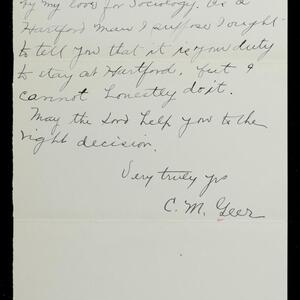 by my love for Sociology. As a
Hartford man I suppose I ought
to tell you that it is your duty
to stay at Hartford, but I
cannot honestly do it.
May the Lord help you to the
right decision.
Very truly yrs
C. M. Geer